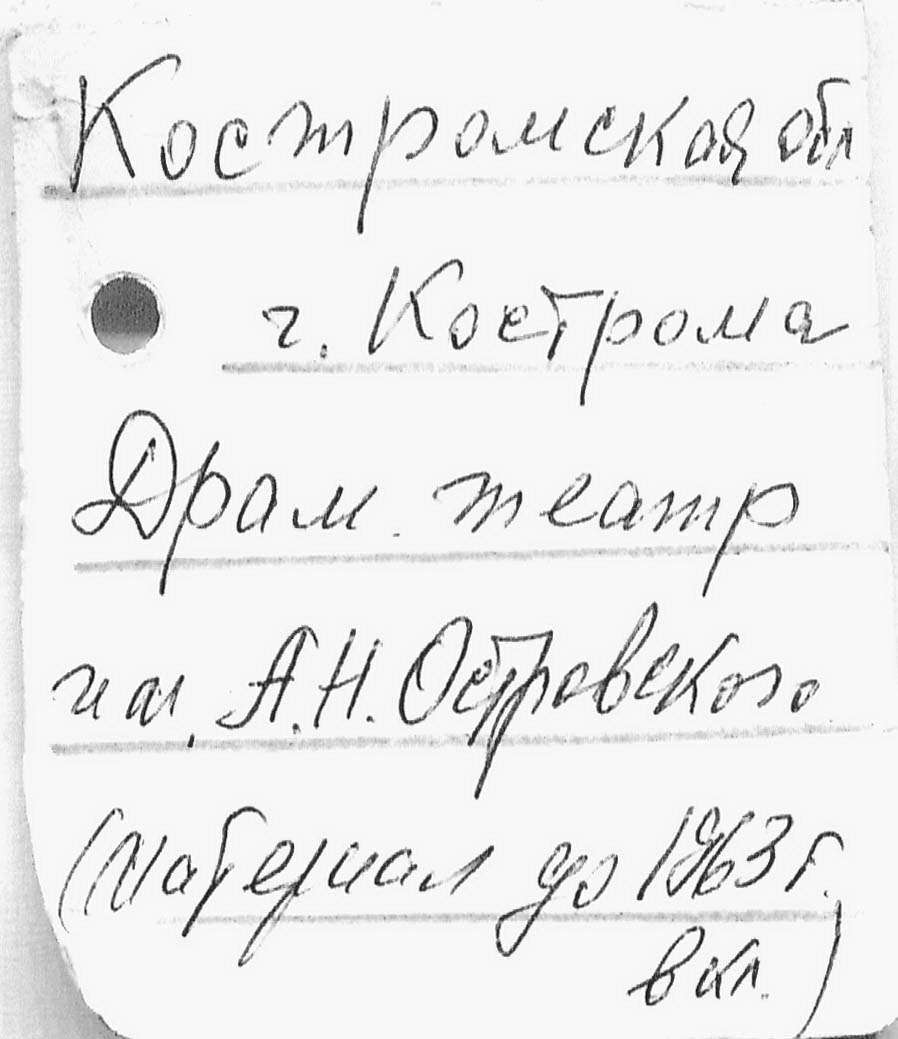 Костромская обл
г. Кострома
Драм. театр
им. А.Н. Островского
(материал до 1963 г.
вкл.)